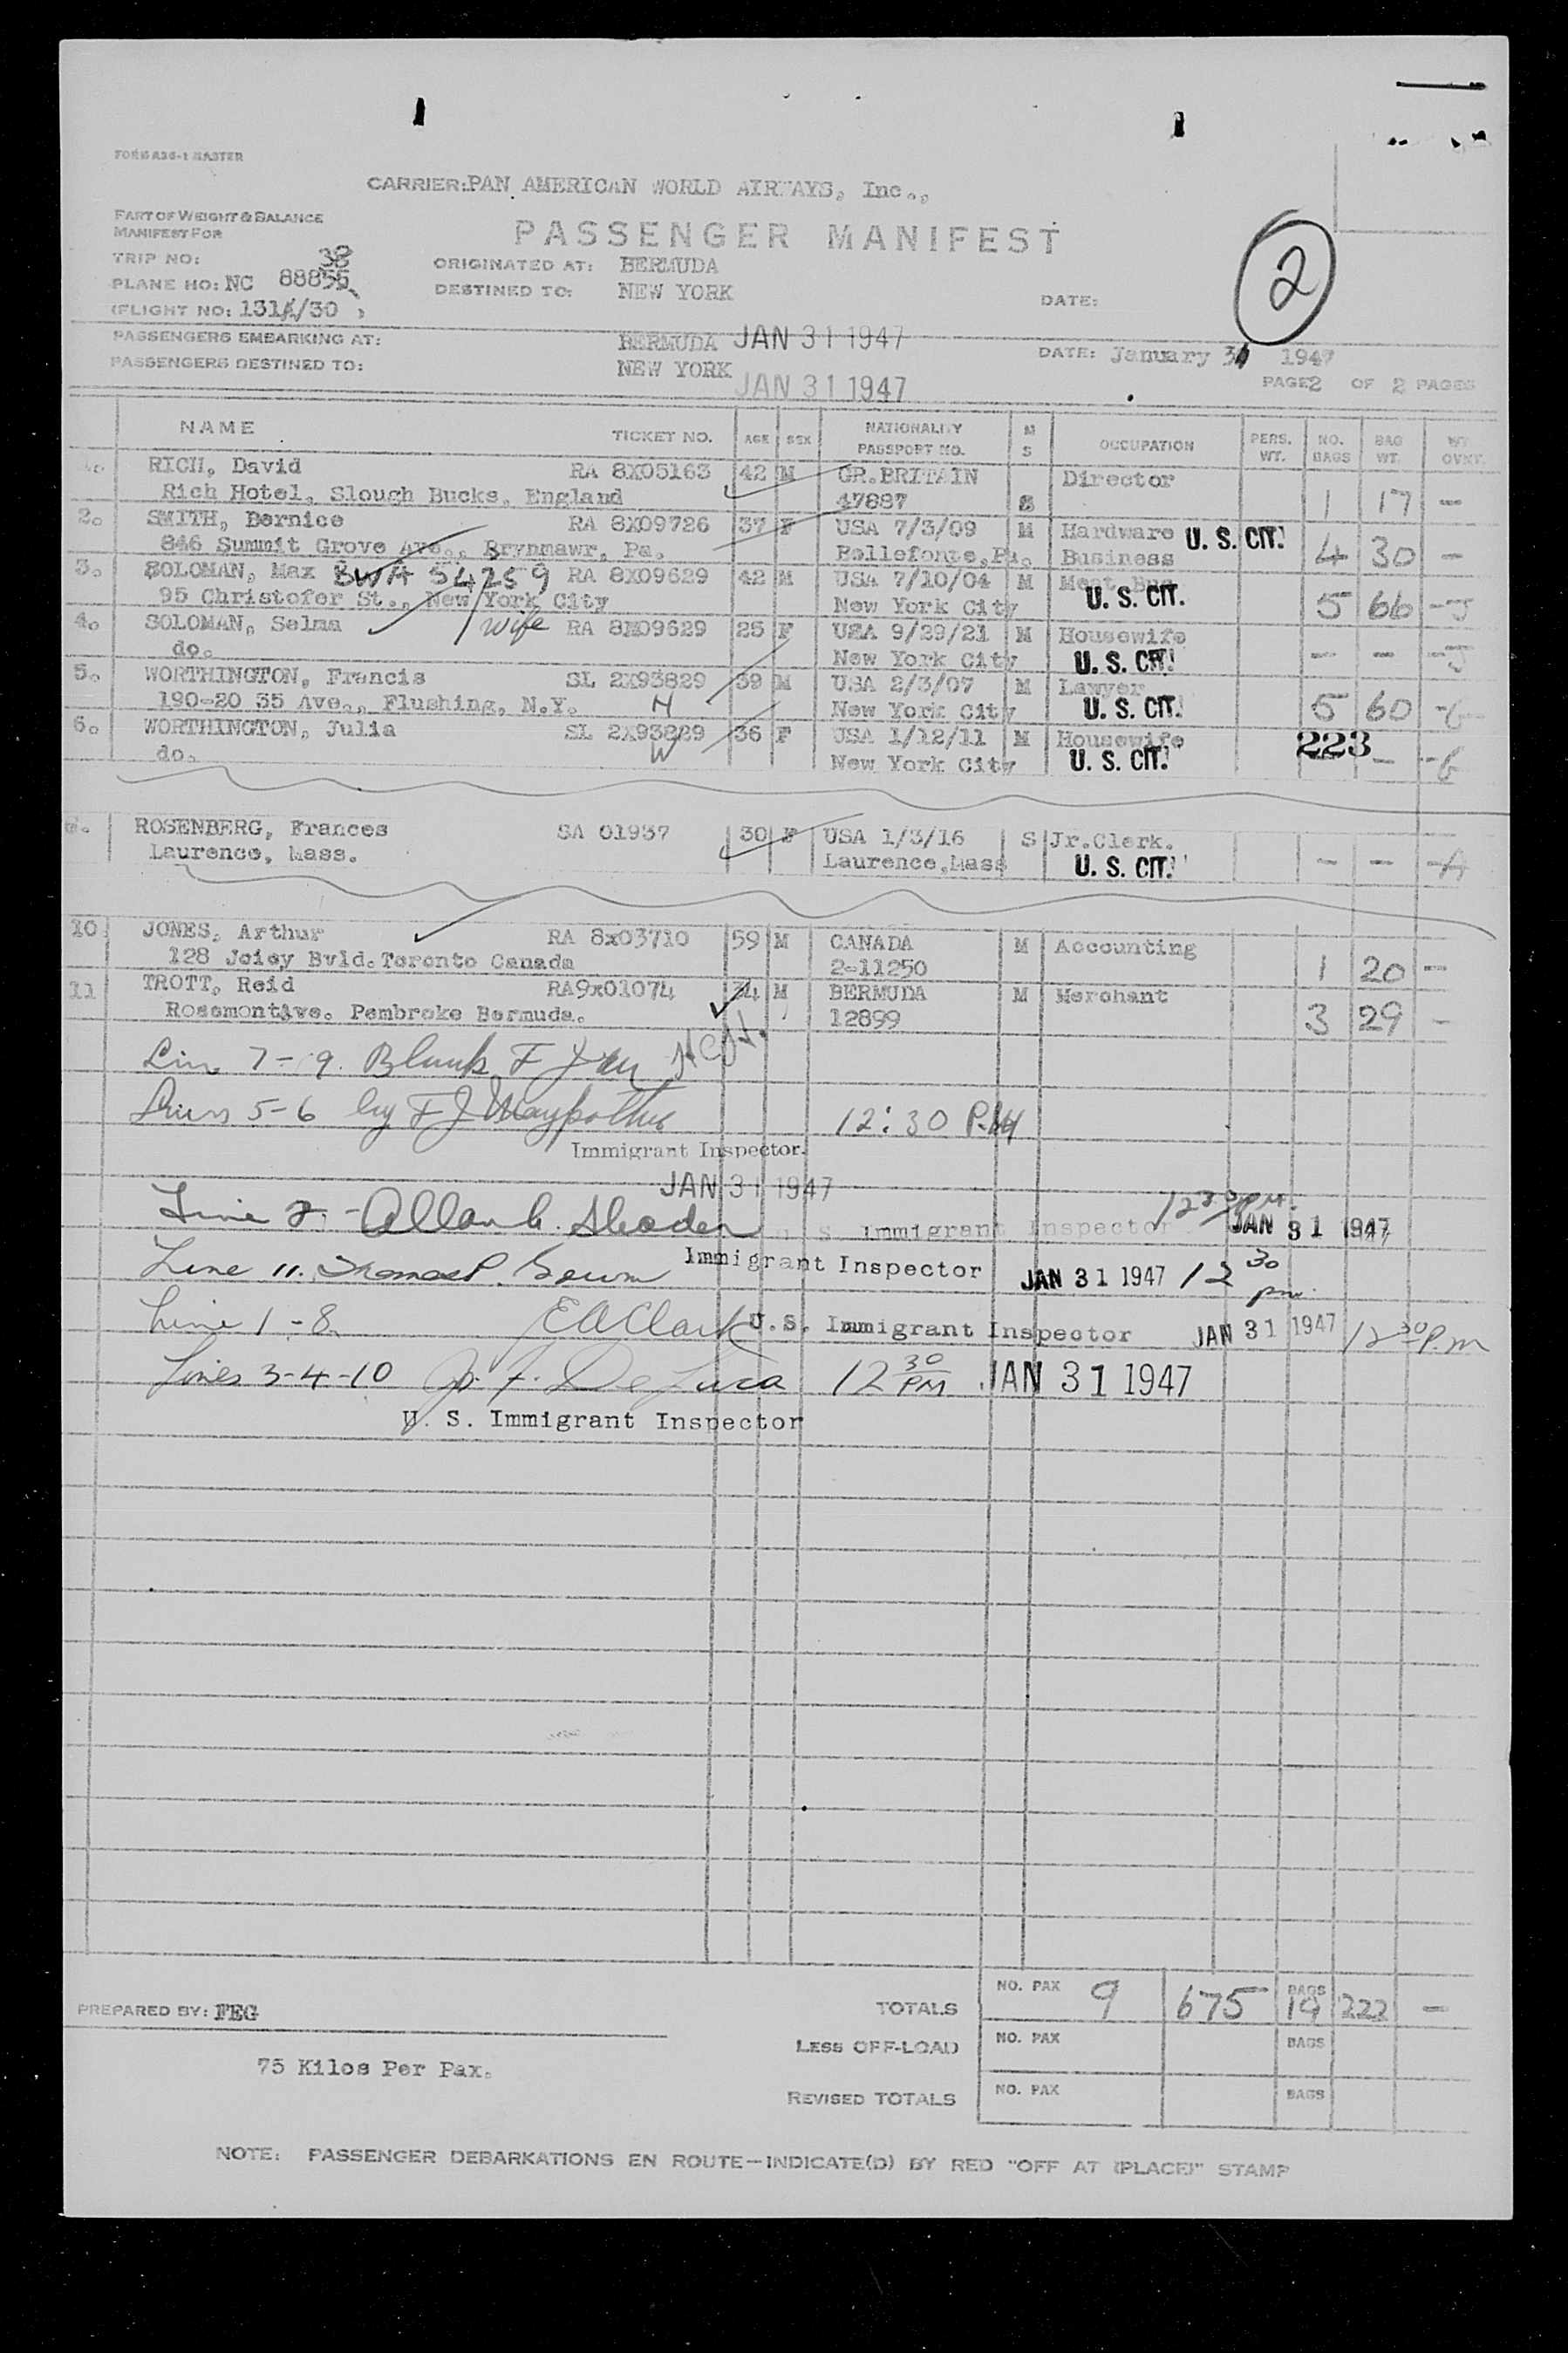 FORM A36-1 MASTER
CARRIER: PAN AMERICAN WORLD AIRWAYS, Inc.,
PART OF WEIGHT & BALANCE
MANIFEST FOR
PASSENGER MANIFEST
2
TRIP NO: 38
ORIGINATED AT: BERMUDA
PLANE NO: NC 88855
DESTINED TO: NEW YORK
DATE:
(FLIGHT NO: 131A/30 )
PASSENGERS EMBARKING AT: BERMUDA JAN 31 1947
DATE: January 31 1947
PASSENGERS DESTINED TO: NEW YORK JAN 31 1947
PAGE 2 OF 2 PAGES
NAME TICKET NO. AGE SEX NATIONALITY PASSPORT NO. M S OCCUPATION PERS. WT. NO. BAGS BAG WT. WT. OVNT.
RICH, David RA 8X05163 42 M GR.BRITAIN Director
Rich Hotel, Slough Bucks, England 47887 S 1 17 -
2. SMITH, Bernice RA 8X09726 37 F USA 7/3/09 M Hardware U. S. CIT.
846 Summit Grove Ave., Brynmawr, Pa. Bellefonte,Pa. Business 4 30 -
3. SOLOMAN, Max BWA 54259 RA 8X09629 42 M USA 7/10/04 M Meat Bus
95 Christofer St., New York City New York City U. S. CIT. 5 66 -J
4. SOLOMAN, Selma wife RA 8X09629 25 F USA 9/29/21 M Housewife
do. New York City U. S. CIT. - - -J
5. WORTHINGTON, Francis SL 2X93829 39 M USA 2/3/07 M Lawyer
190-20 35 Ave., Flushing, N.Y. H New York City U. S. CIT. 5 60 -G
6. WORTHINGTON, Julia SL 2X93829 36 F USA 1/12/11 M Housewife 223
do. W New York City U. S. CIT. - -G
ROSENBERG, Frances SA 01937 30 F USA 1/3/16 S Jr.Clerk.
Laurence, Mass. Laurence,Mass U. S. CIT. - - -A
10 JONES, Arthur RA 8x03710 59 M CANADA M Accounting
128 Joicy Bvld.Toronto Canada 2-11250 1 20 -
11 TROTT, Reid RA9x01074 34 M BERMUDA M Merchant
RosemontAve. Pembroke Bermuda. 12899 3 29 -
7-9. Blank
Lines 5-6 by F J 12:30 P.M
Immigrant Inspector.
JAN 31 1947
Line 2. - Allan
U. S. Immigrant Inspector JAN 31 1947
Line 11. Thomas P.
Immigrant Inspector JAN 31 1947 12 30 pm.
Line 1-8. E A Clark U.S. Immigrant Inspector JAN 31 1947 12 30 P.m
Lines 3-4-10 De Luca 12 30 PM JAN 31 1947
U. S. Immigrant Inspector
PREPARED BY: FEG
TOTALS NO. PAX 9 675 BAGS 19 222 -
LESS OFF-LOAD NO. PAX BAGS
75 Kilos Per Pax.
REVISED TOTALS NO. PAX BAGS
NOTE: PASSENGER DEBARKATIONS EN ROUTE—INDICATE(D) BY RED "OFF AT (PLACE)" STAMP